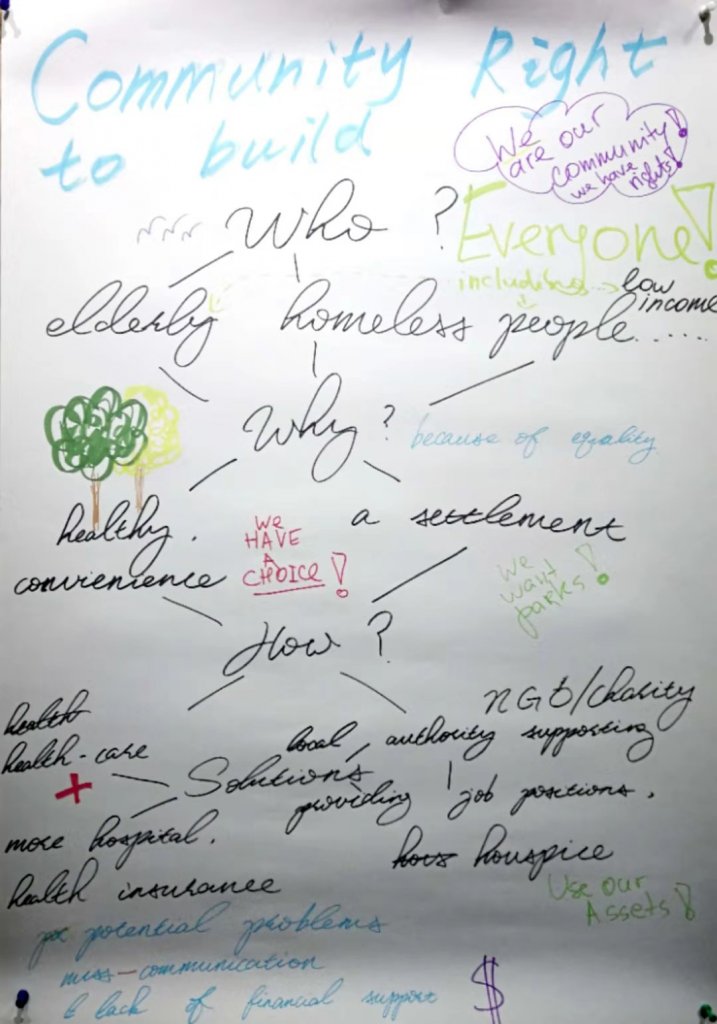 Community Right
to build
We
are our
community!
we have
rights!
Who ?
Everyone!
including
low
income
elderly homeless people.....
Why ?
because of equality
healthy.
convienience
We
HAVE
A
CHOICE!
a settlement
We
want
parks!
How ?
health
health-care
NGO/charity
local authority supporting
Solutions
providing job positions.
more hospital.
hous houspice
health insurance
Use our
Assets!
potential problems
miss-communication
& lack of financial support
$